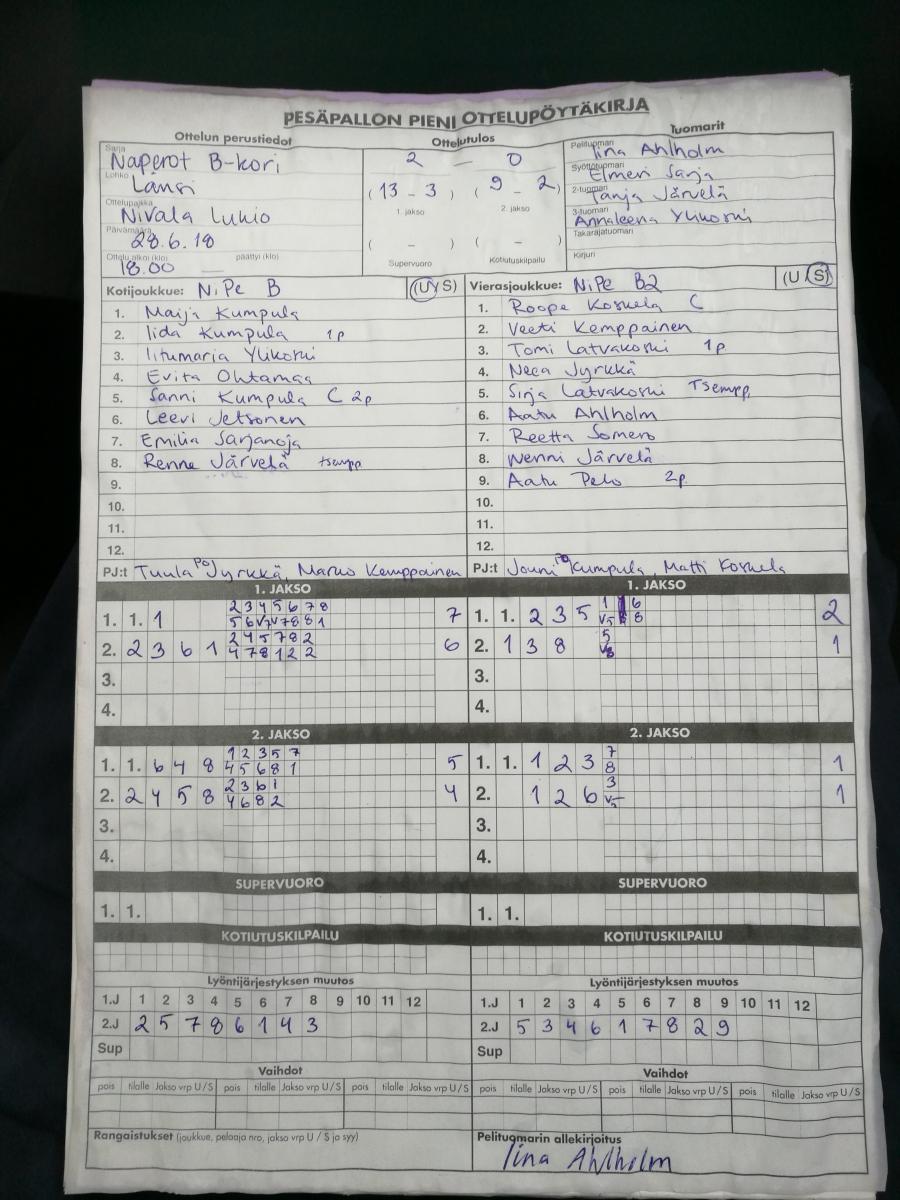 PESÄPALLON PIENI OTTELUPÖYTÄKIRJA
Ottelun perustiedot
Sarja
Naperot B-kori
Lohko
Länsi
Ottelupaikka
Nivala Lukio
Päivämäärä
28.6.18
Ottelu alkoi (klo) päättyi (klo)
18.00 —
Ottelutulos
2 — 0
(13 - 3) (9 - 2)
1. jakso 2. jakso
( - ) ( - )
Supervuoro Kotiutuskilpailu
Tuomarit
Pelituomari
Iina Ahlholm
Syöttötuomari
Elmeri Sarja
2-tuomari
Tanja Järvelä
3-tuomari
Annaleena Ylikoski
Takarajatuomari
Kirjuri
Kotijoukkue: NiPe B (U/S)
1. Maija Kumpula
2. Iida Kumpula 1p
3. Iitumaria Ylikoski
4. Evita Ohtamaa
5. Sanni Kumpula C 2p
6. Leevi Jetsonen
7. Emilia Sarjanoja
8. Renne Järvelä tsempp
9.
10.
11.
12.
PJ:t Tuula PO Jyrkkä, Marko Kemppainen
Vierasjoukkue: NiPe B2 (U/S)
1. Roope Koskela C
2. Veeti Kemppainen
3. Tomi Latvakoski 1p
4. Neea Jyrkkä
5. Sirja Latvakoski Tsempp
6. Aatu Ahlholm
7. Reetta Somero
8. Wenni Järvelä
9. Aatu Pelo 2p.
10.
11.
12.
PJ:t Jouni PO Kumpula, Matti Koskela
1. JAKSO
2 3 4 5 6 7 8
1. 1. 1 7
2 4 5 7 8 2
2. 2 3 6 1 6
4 7 8 1 2 2
3.
4.
2. JAKSO
1 2 3 5 7
1. 1. 6 4 8 5
4 5 6 8 1
2 3 6 1
2. 2 4 5 8 4
4 6 8 2
3.
4.
SUPERVUORO
1. 1.
KOTIUTUSKILPAILU
Lyöntijärjestyksen muutos
1.J 1 2 3 4 5 6 7 8 9 10 11 12
2.J 2 5 7 8 6 1 4 3
Sup
Vaihdot
pois tilalle Jakso vrp U/S pois tilalle Jakso vrp U/S pois tilalle Jakso vrp U/S
Rangaistukset (joukkue, pelaaja nro, jakso vrp U / S ja syy)
1. JAKSO
1. 1. 2 3 5 2
2. 1 3 8 1
3.
4.
2. JAKSO
7
1. 1. 1 2 3 1
8
3
2. 1 2 6 1
V5
3.
4.
SUPERVUORO
1. 1.
KOTIUTUSKILPAILU
Lyöntijärjestyksen muutos
1.J 1 2 3 4 5 6 7 8 9 10 11 12
2.J 5 3 4 6 1 7 8 2 9
Sup
Vaihdot
pois tilalle Jakso vrp U/S pois tilalle Jakso vrp U/S pois tilalle Jakso vrp U/S
Pelituomarin allekirjoitus
Iina Ahlholm